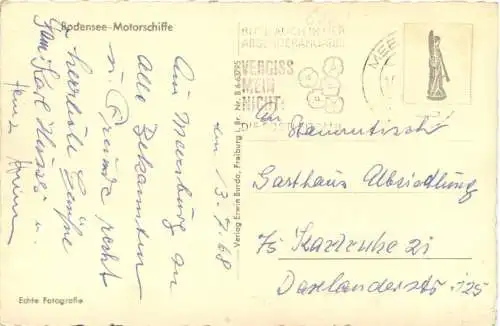 Bodensee-Motorschiffe
den 13.7.68
Aus Meersburg an
alle Bekannten
u. Freunde recht
herzliche Grüße
Fam. Karl
Echte Fotografie
Verlag Erwin Burda, Freiburg i. Br. Nr. B
VERGISS
MEIN
NICHT:
DIE POSTLEITZAHL
MEE
An
Stammtisch
Gasthaus
75 Karlsruhe 21
Daxlanderstr. 125